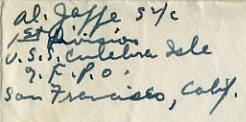 Al. Jaffe S 1/c
1st Division
U.S.S. Culebra Isle
℅ F.P.O.
San Francisco, Calif.